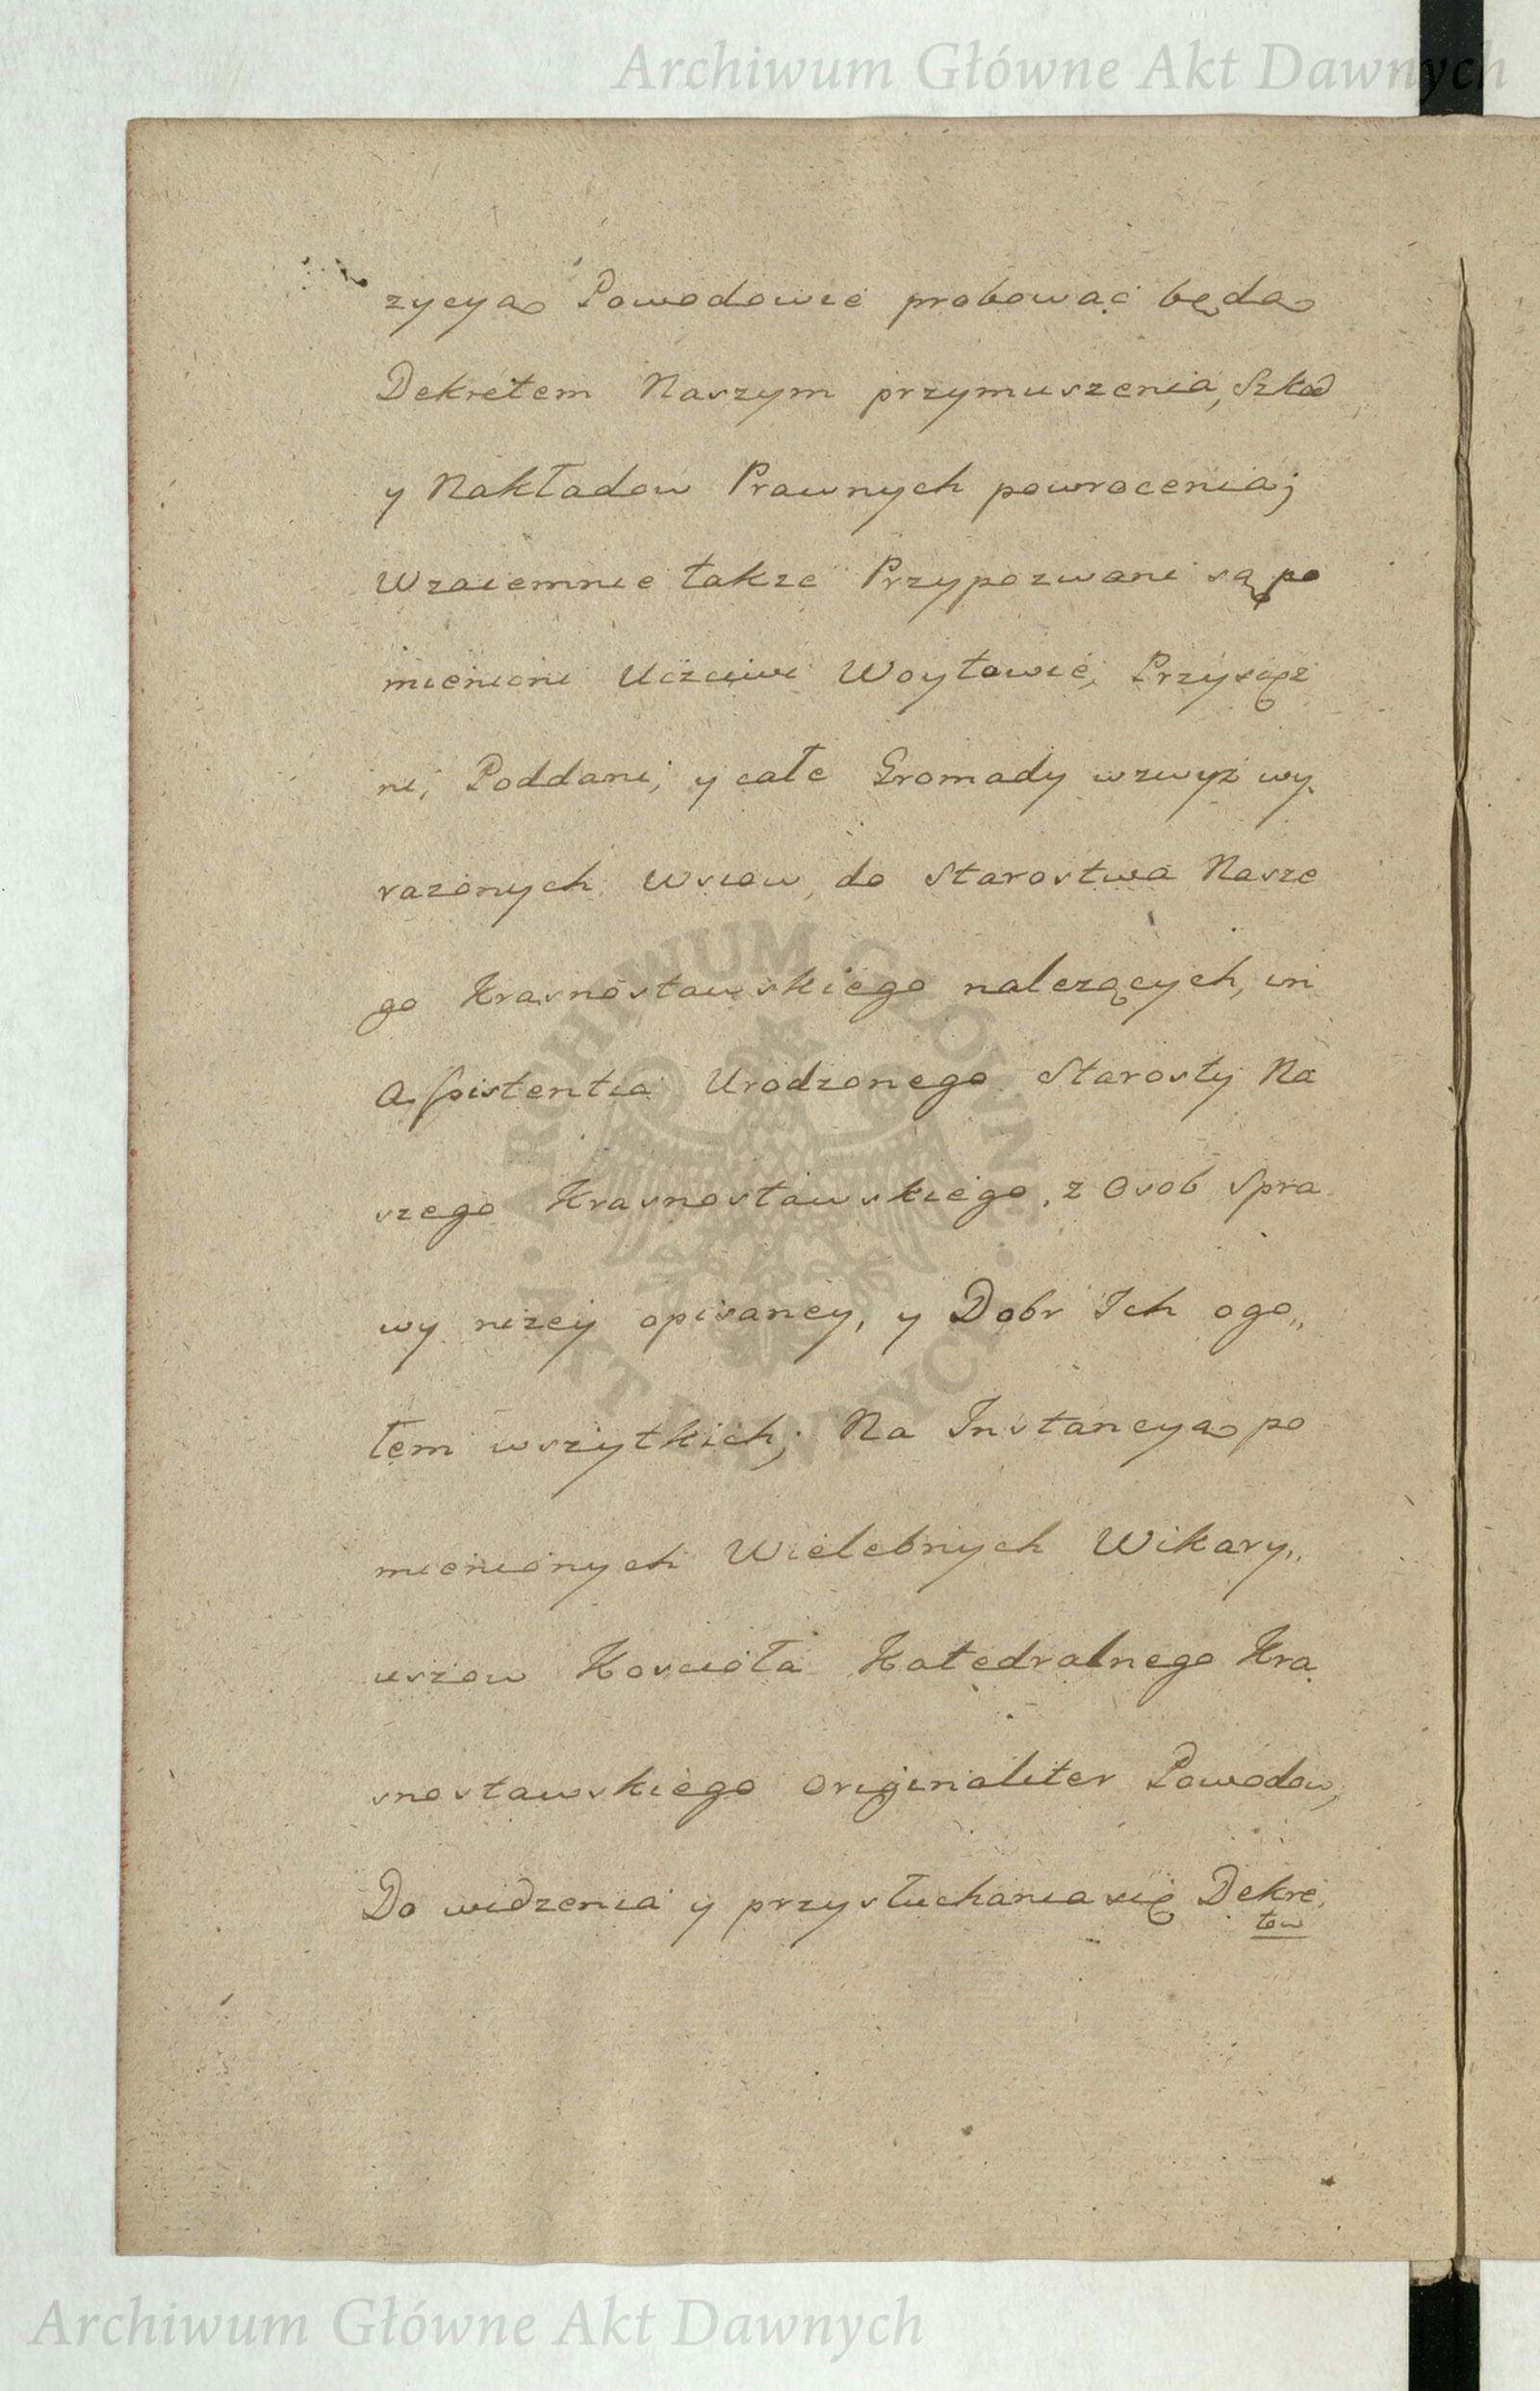 Archiwum Główne Akt Dawnych
zycyą Powodowie probować będą
Dekretem Naszym przymuszenia, Szkod
y Nakładow Prawnych powrocenia;
Wzaiemnie także Przypozwani są po
mienieni Uczciwi Woytowie, Przysięż
ni, Poddani, y całe Gromady wzwyż wy
rażonych Wsiow, do Starostwa Nasze
go Krasnostawskiego należących, in
Assistentia Urodzonego Starosty Na
szego Krasnostawskiego, z Osob Spra
wy niżey opisaney, y Dobr Ich ogo„
łem wszytkich; Na Instancyą po
mienionych Wielebnych Wikary„
uszow Kościoła Katedralnego Kra
snostawskiego originaliter Powodow,
Do widzenia y przysłuchania się Dekre
tow
ARCHIWUM GŁÓWNE · AKT DAWNYCH ·
Archiwum Główne Akt Dawnych